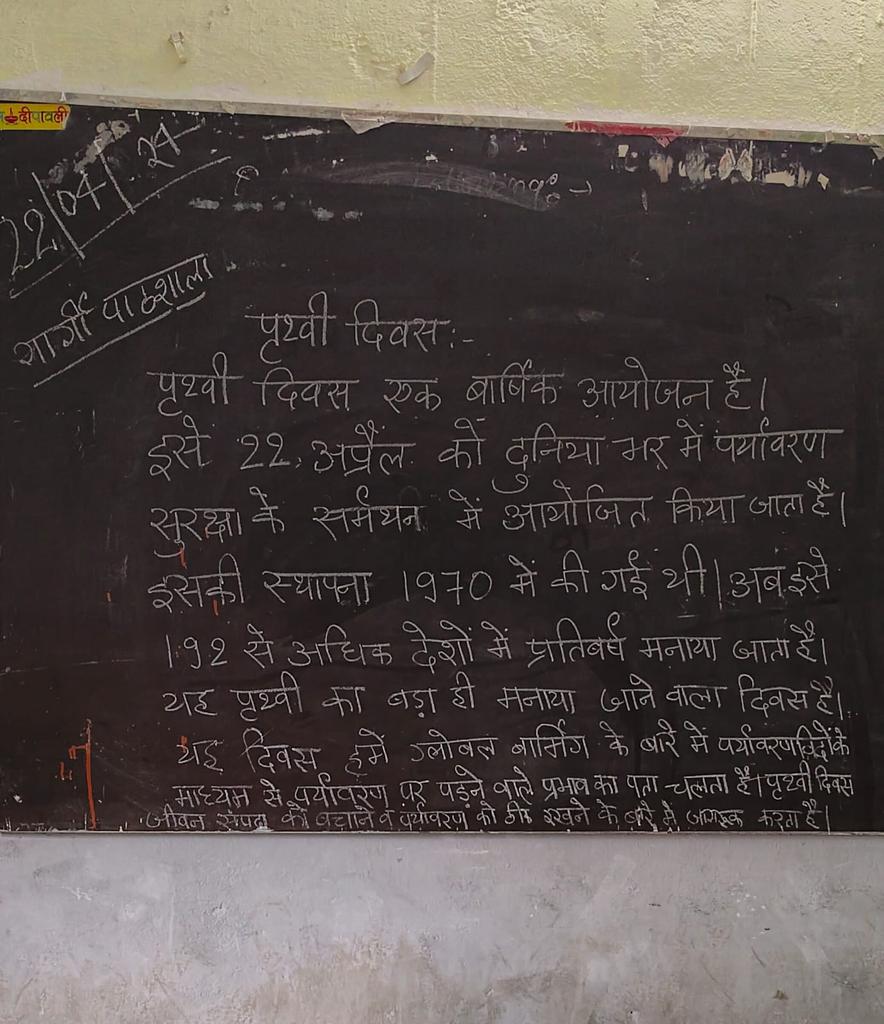 दीपावली
22/04/24
गार्गी पाठशाला
पृथ्वी दिवस:-
पृथ्वी दिवस एक बार्षिक आयोजन है।
इसे 22, अप्रैल को दुनिया भर में पर्यावरण
सुरक्षा के सर्मथन में आयोजित किया जाता है।
इसकी स्थापना 1970 में की गई थी। अब इसे
192 से अधिक देशों में प्रतिबर्ष मनाया जाता है।
यह पृथ्वी का बड़ा ही मनाया जाने वाला दिवस है।
यह दिवस हमें ग्लोबल बार्मिंग के बारे में पर्यावरणविदों के
माध्यम से पर्यावरण पर पड़ने वाले प्रभाव का पता चलता है। पृथ्वी दिवस
जीवन संपदा को बचाने व पर्यावरण को ठीक रखने के बारे में जागरूक करता है।